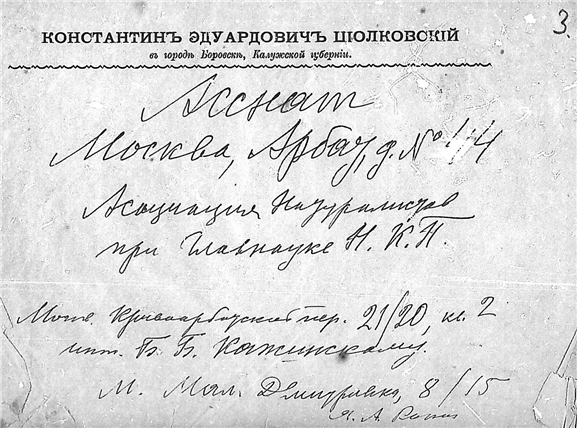 3.
КОНСТАНТИНЪ ЭДУАРДОВИЧЪ ЦІОЛКОВСКІЙ
въ городѣ Боровскѣ, Калужской губерніи.
Асснат
Москва, Арбат, д. №
Асоциация Натуралистов
при Главнауке Н. К. П.
Моск. Кривоарбатский пер. 21/20, кв. 2
инж. Б. Б. Кажинскому.
М. Мал. Дмитровка, 8/15